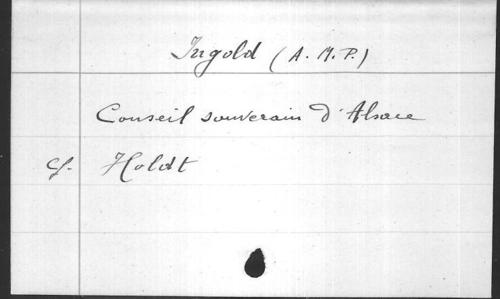 Ingold (A. M. P.)
Conseil souverain d'Alsace
cf. Holdt